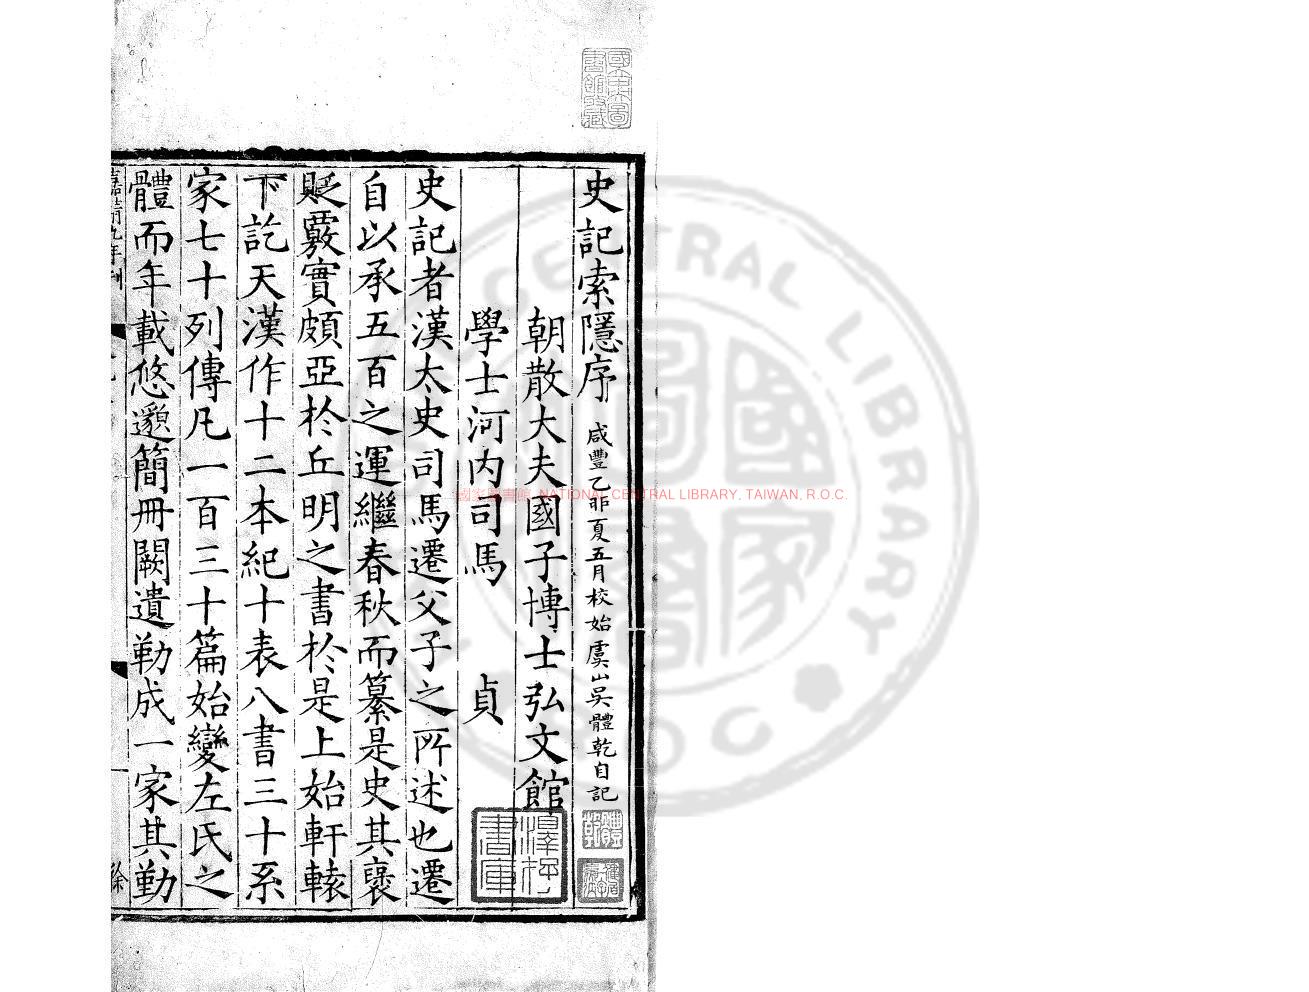 史記索隱序 咸豐乙卯夏五月校始虞山吳體乾自記
朝散大夫國子博士弘文館
學士河内司馬 貞
史記者漢太史司馬遷父子之所述也遷
自以承五百之運繼春秋而纂是史其襃
貶覈實頗亞於丘明之書於是上始軒轅
下訖天漢作十二本紀十表八書三十系
家七十列傳凡一百三十篇始變左氏之
體而年載悠邈簡冊闕遺勒成一家其勤
嘉靖九年刊
徐
國家圖書館 NATIONAL CENTRAL LIBRARY, TAIWAN, R.O.C.
CENTRAL LIBRARY
ROC
國家